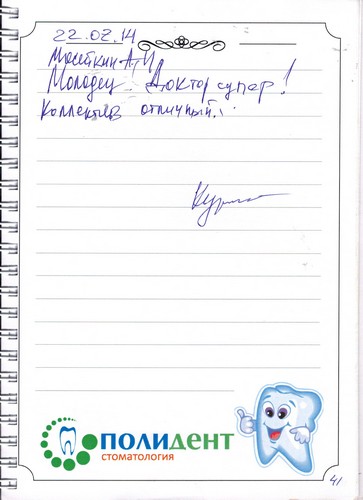 22.02.14
А.И.
Молодец Доктор супер!
Коллектив отличный.
ПОЛИДЕНТ
СТОМАТОЛОГИЯ
41